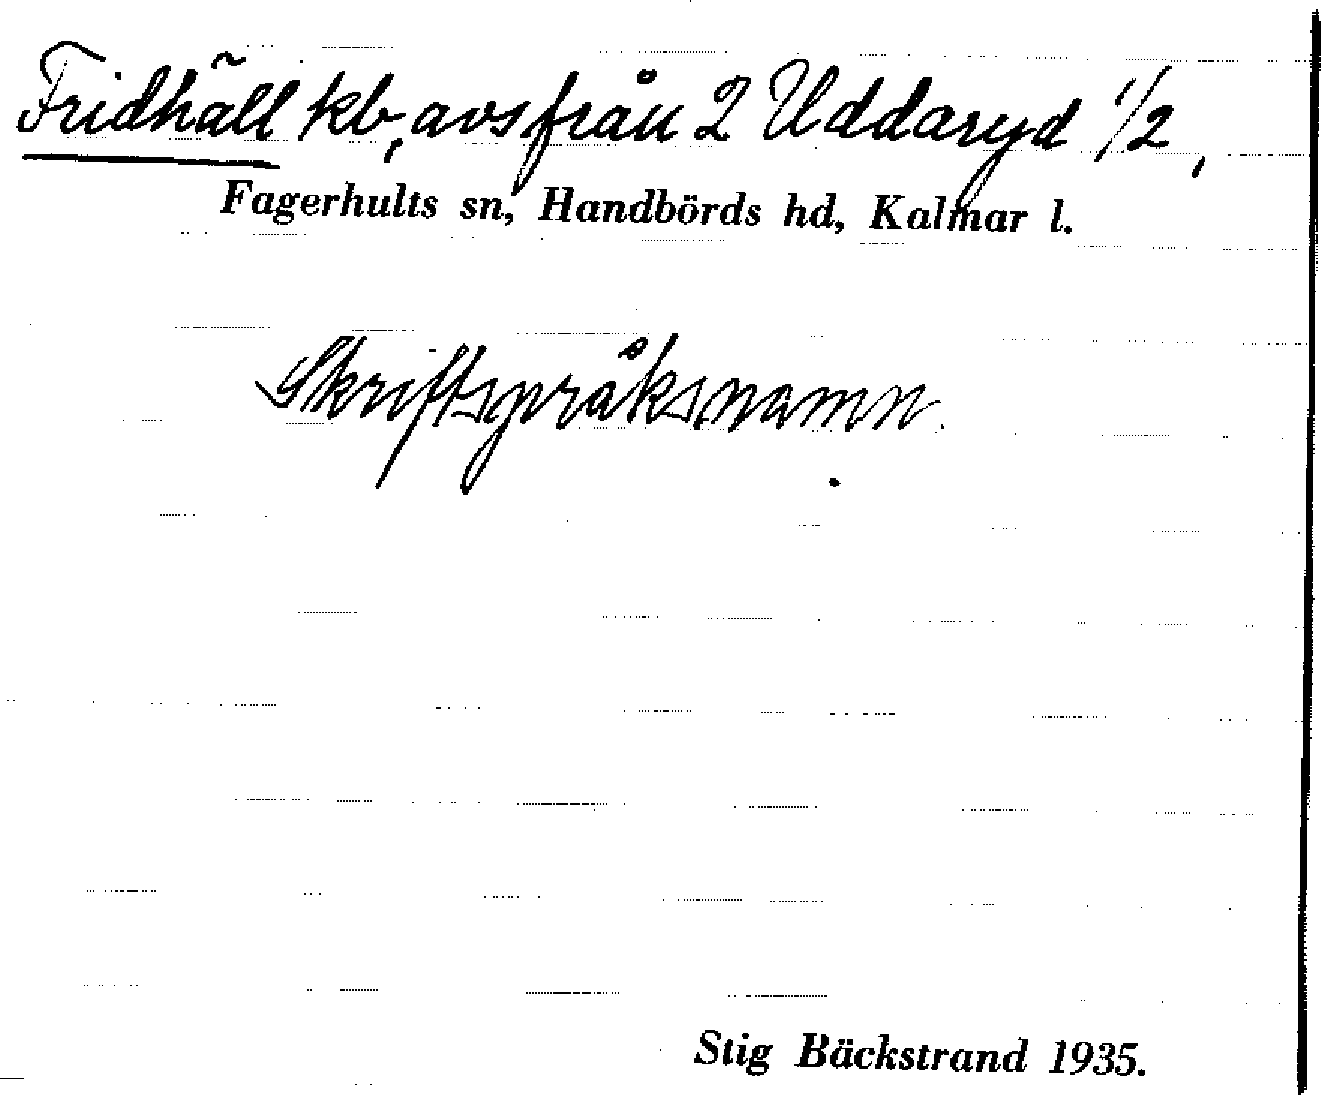 Fridhäll kb, avs från 2 Uddaryd 1/2,
Fagerhults sn, Handbörds hd, Kalmar l.
Skriftspråksnamn.
Stig Bäckstrand 1935.